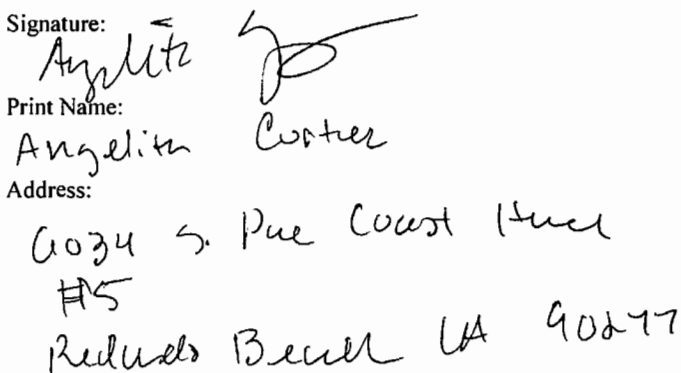 Signature:
Angelita
Print Name:
Angelita
Address:
S. Pac Coast Hwy
#5
Redondo Beach CA 90277